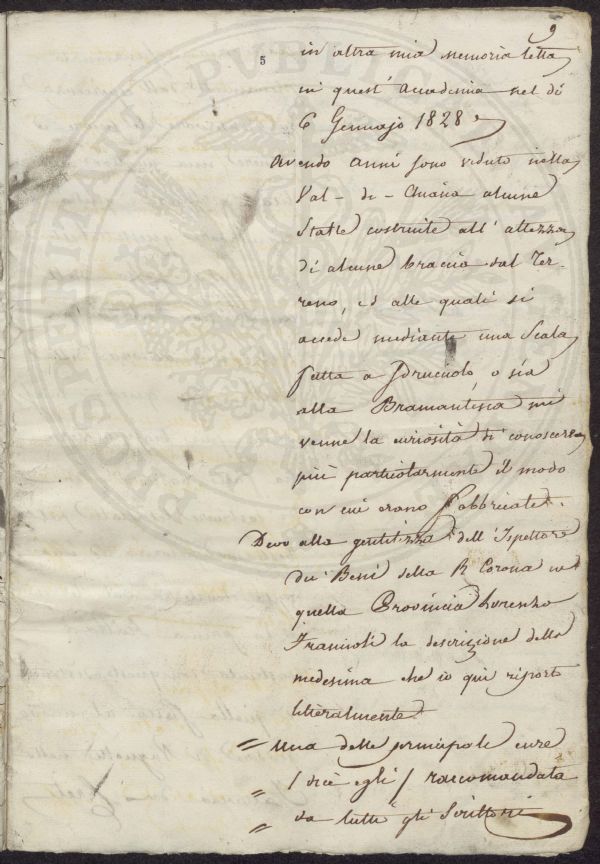 9
5
in altra mia memoria letta
in quest' Accademia nel dì
6 Gennajo 1828.
Avendo anni sono veduto nella
Val-di-Chiana alcune
Stalle costruite all' altezza
di alcune braccia dal Ter-
reno, ed alle quali si
accede mediante una Scala
fatta a Sdrucciolo, o sia
alla Bramantesca mi
venne la curiosità di conoscere
più particolarmente il modo
con cui erano fabbricate.
Devo alla gentilezza dell' Ispettore
dei Beni della R. Corona in
quella Provincia Lorenzo
la descrizione della
medesima che io qui riporto
litteralmente
= Una delle principali cure
/ dice egli / raccomandata
= da tutti gli Scrittori
=
PROSPERITATI PUBLICAE